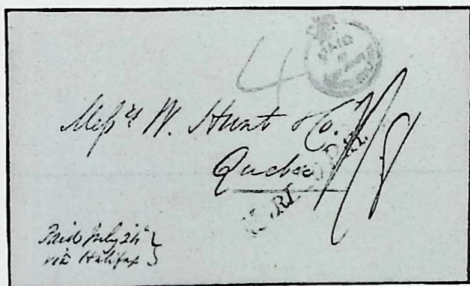 4
PAID
Messrs W. Hunt & Co.
Quebec
1/8
Paid July 24
via Halifax